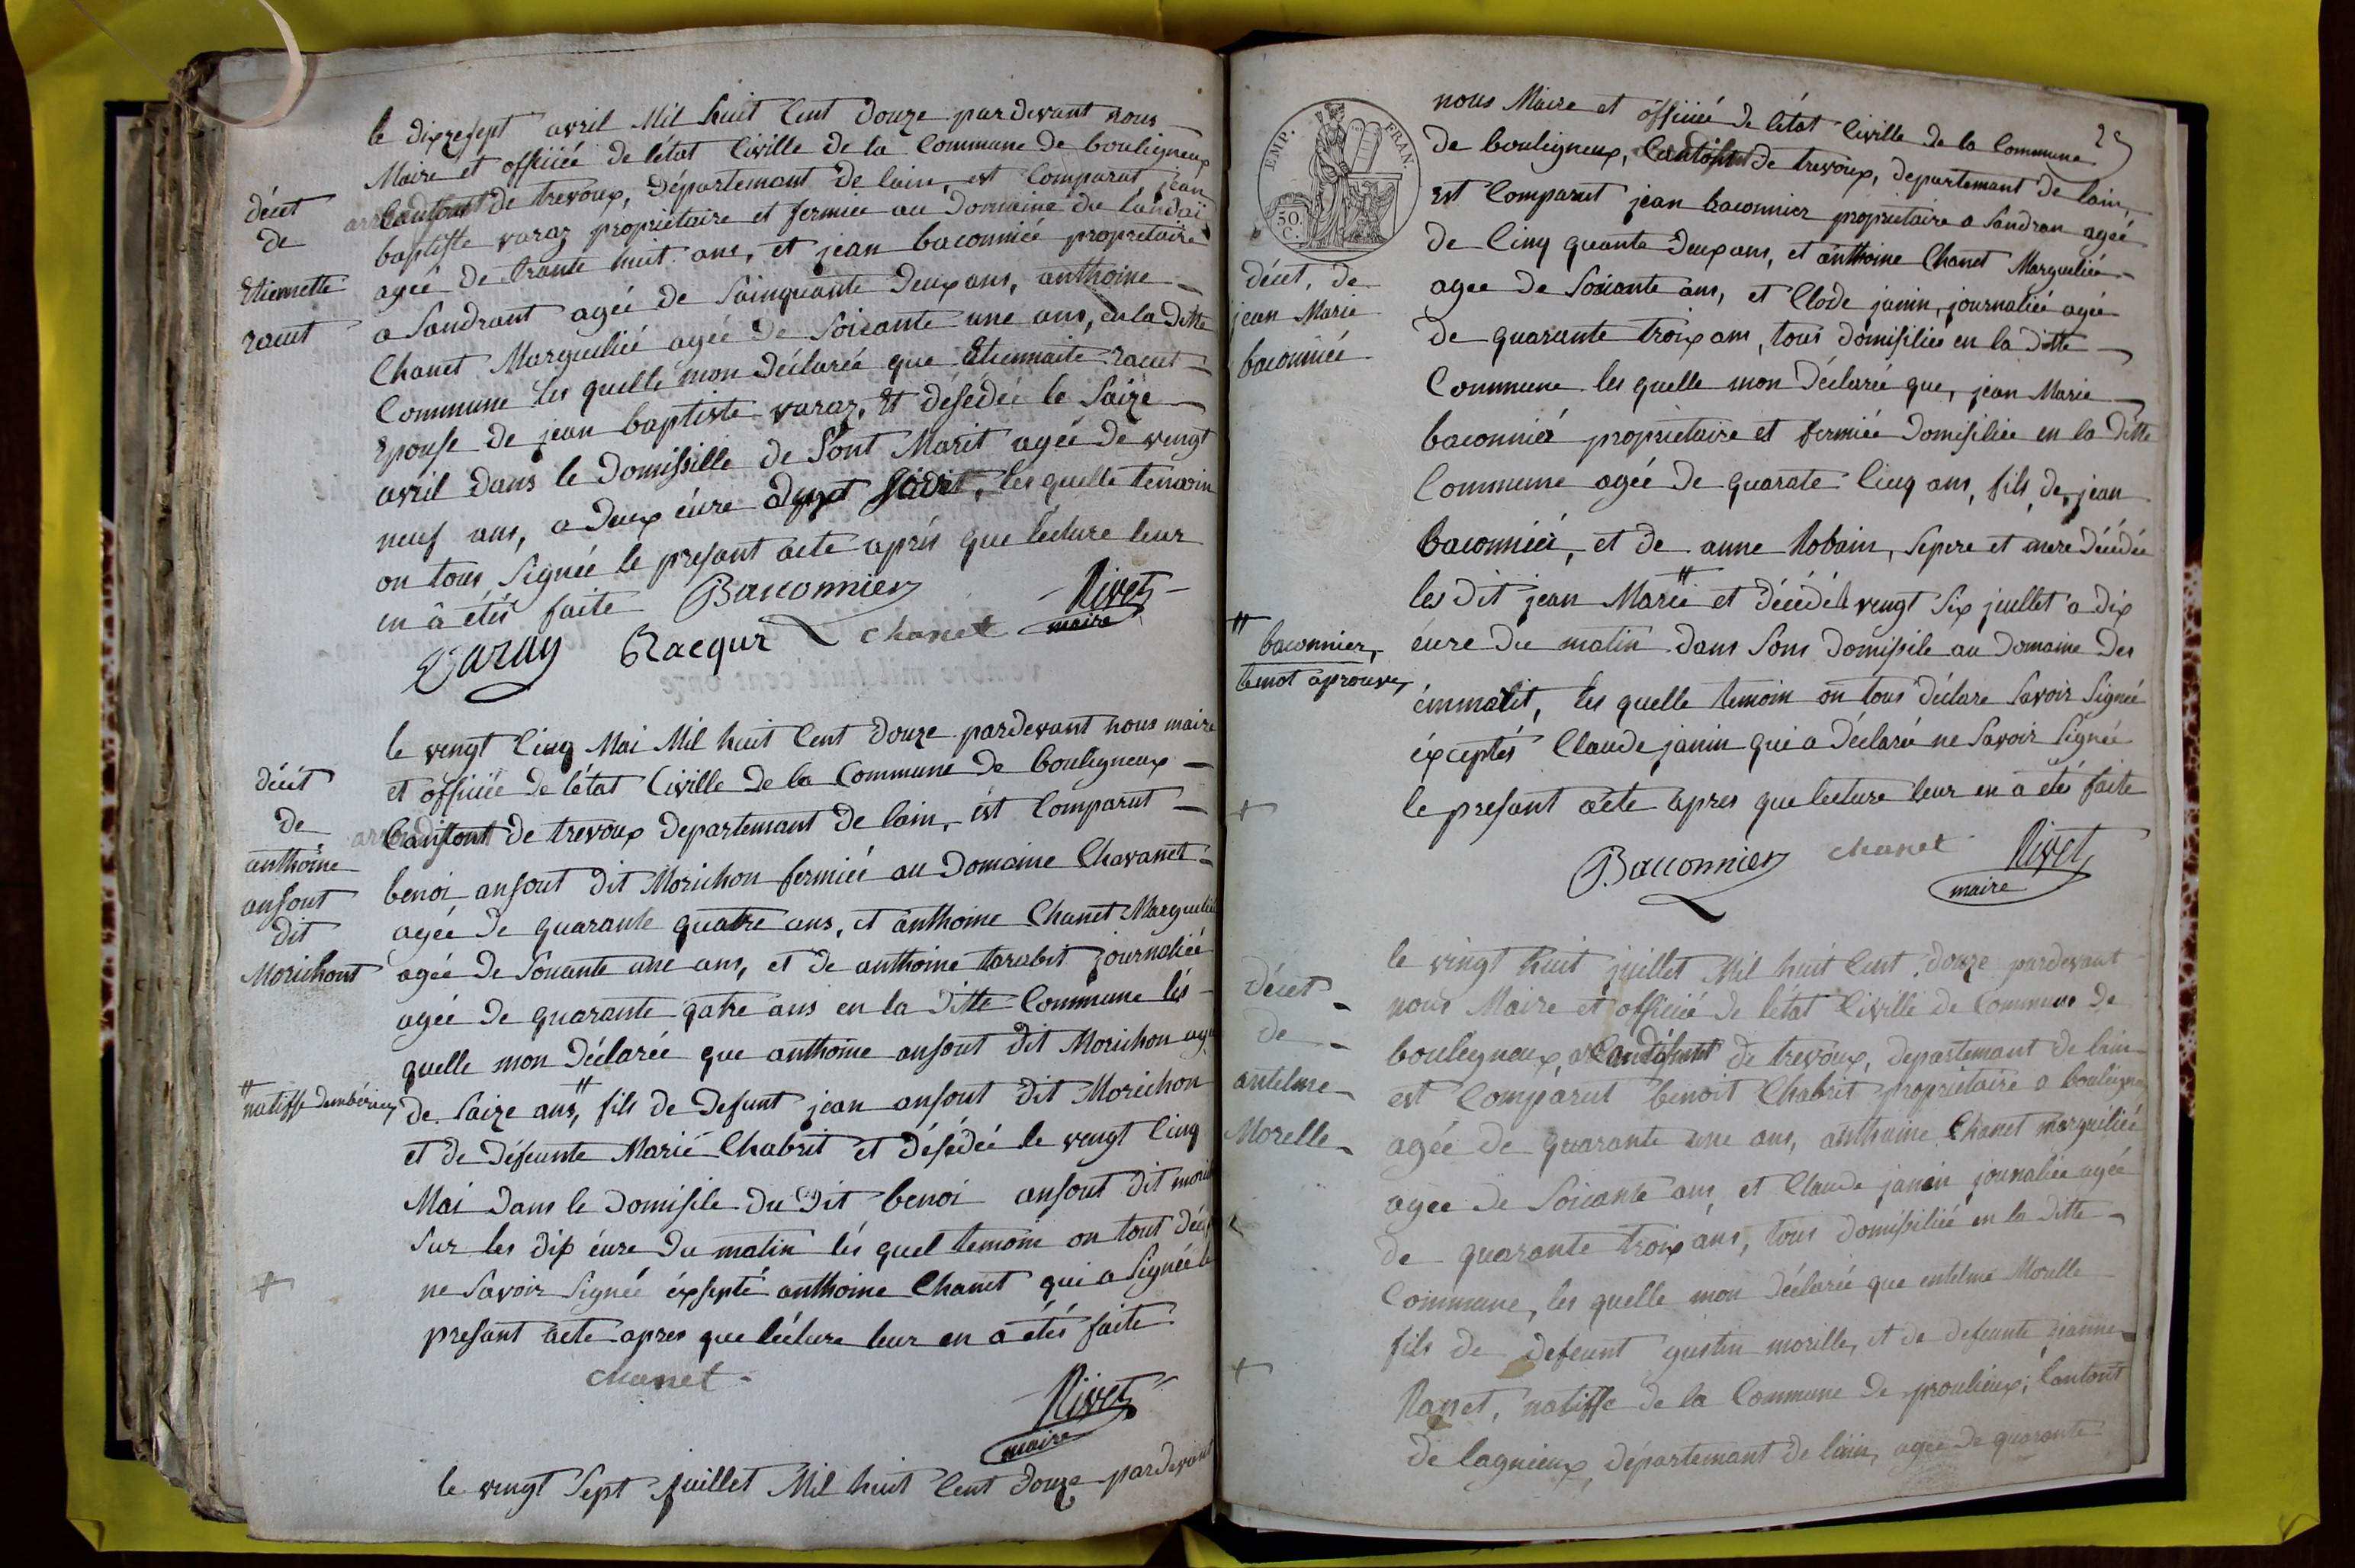 le dixresept avril Mil huit Cent Douze pardevant nous
Maire et officiée de létat Civille de la Commune de bouligneux
de trevoux, Département de lain, est Comparut jean
baptiste varaz propriétaire et fermiee au Domaine du
agée de trante huit ans, et jean baconniée propretaire
a Sandrant agée de Sainquante Deux ans, anthoine
Chanet Margueilié agée de Soixante une ans, la ditte
Commune les quelle mon Déclarée que Etiennaite racut
Epouse de jean baptiste varaz, et désédée le Saize
avril dans le Domissille de Sont Marit agée de vengt
neuf ans, a Deux éure les quelle temoin
on tous Signée le presant acte aprés que lecture leur
en â étés faite
Baconnier
Rivet
maire
Varay
Racqur
chanet
décet
de
Etiennette
racut
le vengt Cinq Mai Mil huit Cent Douze pardevant nous maire
et officiée de létat Civille de la Commune de bouligneux
de trevoux departemant de lain, ést Comparut
benoi ansout dit Morichon fermiée au Domaine Chavanet
agée de quarante quatre ans, et anthoine Chanet Margueilié
agée de Soixante une ans, et de anthoine tarabit journaliée
agée de quarante qatre ans en la ditte Commune lés
quelle mon Déclarée que anthoine ansout dit Morichon agé
de Saize ans,# fils de Defunt jean ansout dit Morichon
et de défeunte Marie Chabrit et désédée le vengt Cinq
Mai dans le Domisile du Dit benoi ansout dit
Sur les dix éure du matin lés quel temoin on tout
ne Savoir Signée éxsepté anthoine Chanet qui a Signée le
presant acte apres que lécture leur en a étés faite
chanet
Rivet
maire
décét
de
anthoine
ansout
dit
Morichont
#
natiffe dambérieux
le vengt Sept juillet Mil huit Cent Douze pardevant
25
EMP. FRAN.
50 C.
nous Maire et officiée de létat Civille de la Commune
de bouligneux, de trevoux, departemant de lain,
est Comparut jean baconnier propriétaire a Sandran agée
de Cinq quante deux ans, et anthoine Chanet Margueliée
agée de Soixante ans, et Clode janin, journaliée agée
de quarante troix ans, tous domisiliée en la ditte
Commune les quelle mon Déclarée que, jean Marie
baconniée propriétaire et fermiée Domisiliée en la ditte
Commune agée de quarate Cinq ans, fils, de, jean
baconniée, et de anne Robain, Sepere et mere décédée
les dit jean Marie# et décédé le vengt Six juillet a dix
éure du matin dans Sons Domisile au Domaine des
les quelle temoin on tous déclare Savoir Signée
éxceptés Claude janin qui a Déclarée ne Savoir Signée
le presant acte apres que lecture leur en a étés faite
Baconnier
chanet
Rivet
maire
décet, de
jean Marie
baconniée
#
baconnier,
lemot aprouve,
le vingt huit juillet Mil huit Cent Douze pardevant
nous Maire et officiée de létat Civille de Commune de
bouligneux, de trevoux, departemant de lain
est Comparut benoit Chabrit propriétaire a bouligneux
agée de quarante une ans, anthoine Chanet margueiliée
agée de Soixante ans, et Claude janin journaliée agée
de quarante troix ans, tous domisiliée en la ditte
Commune, les quelle mon Déclarée que entelme Morelle
fils de defeunt gustin morille, et de defeunte jeanne
natiffe de la Commune de proulieux, Cantont
de lagnieux, département de lain, agée de quarante
Décet
de
antelme
Morelle